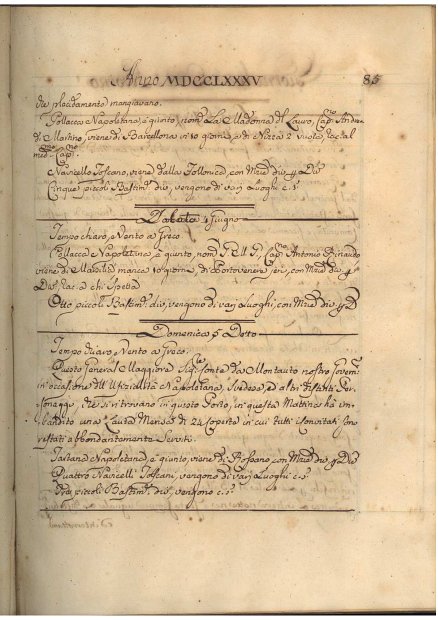 Anno MDCCLXXXV 85
che placidamente mangiavano.
Pollacca Napoletana è quinto, nom.ta La Madonna del Lauro, Cap.no Andrea
di Martino, viene di Barcellona in 10 giorni, e di Nizza 2 vuota, rac. al
med.mo Cap.no
Navicello Toscano, viene dalla Follonica, con Merci div. p. Div.
Cinque piccoli Bastim.ti div. vengono di varj Luoghi c. s.a
4 Giugno
Tempo chiaro, e Vento a Greco
Pollacca Napoletana, è quinto, nom. Cap.no Antonio Rinaudo
viene di Marsilia manca 10 giorni, di Portovenere jeri, con Merci div. p.
Div. rac. a chi Spetta
Otto piccoli Bastim.ti div. vengono di varj Luoghi, con Merci div. p. D.
Domenica 5 Detto
Tempo chiaro, e Vento a Greco.
Questo General Maggiore Sig.r Conte da Montauto nostro Govern.e
in occasione dell' Ufizialità Napoletana, Svedese, ed altri distinti Per-
sonaggi, che si ritrovano in questo Porto, in questa Mattina ha im-
bandito una Lauta Mensa di 24 Coperte in cui tutti i Convitati sono
restati abbondantemente Serviti.
Tartana Napoletana, è quinto, viene di con Merci div. p. Div.
Quattro Navicelli Toscani, vengono di varj Luoghi c. s.a
piccoli Bastim.ti div. vengono c. s.a